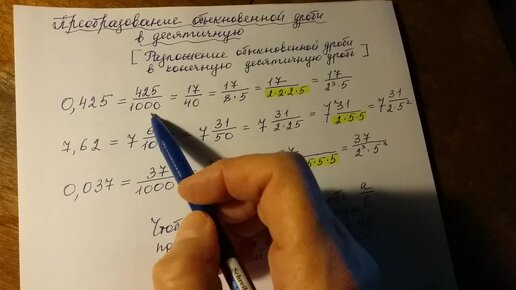 Преобразование обыкновенной дроби
в десятичную
[ Разложение обыкновенной дроби
в конечную десятичную дробь ]
0,425 = 425/1000 = 17/40 = 17/8·5 = 17/2·2·2·5 = 17/2³·5
7,62 = 7 6 /10 = 7 31/50 = 7 31/2·25 = 7 31/2·5·5 = 7 31/2·5²
0,037 = 37/1000 5·5·5 = 37/2³·5³
a